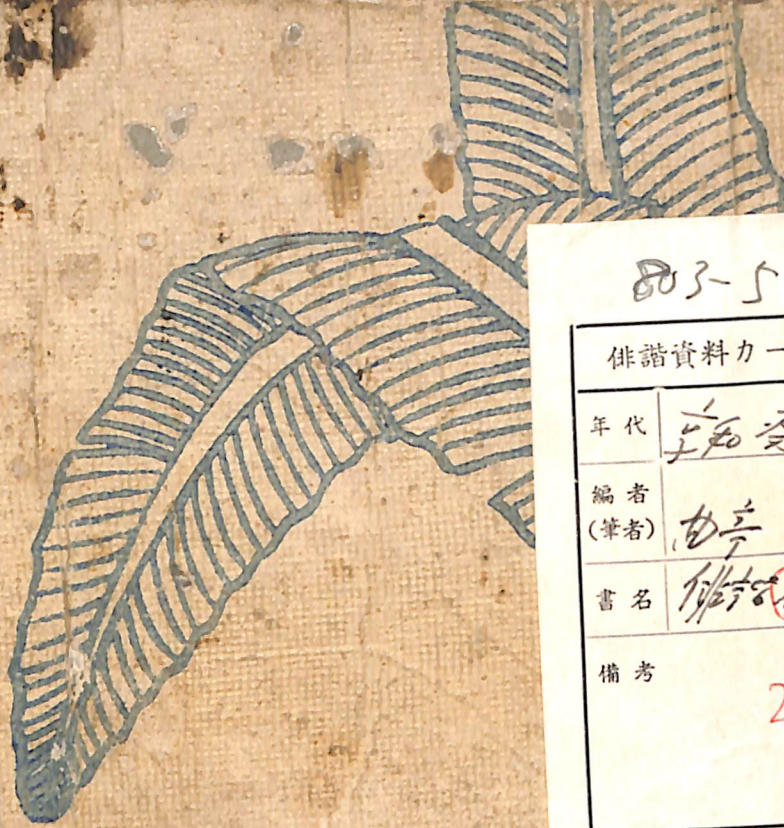 803-5
俳諧資料カー
年代 享和
編者
(筆者) 曲亭
書名 俳諧
備考
2